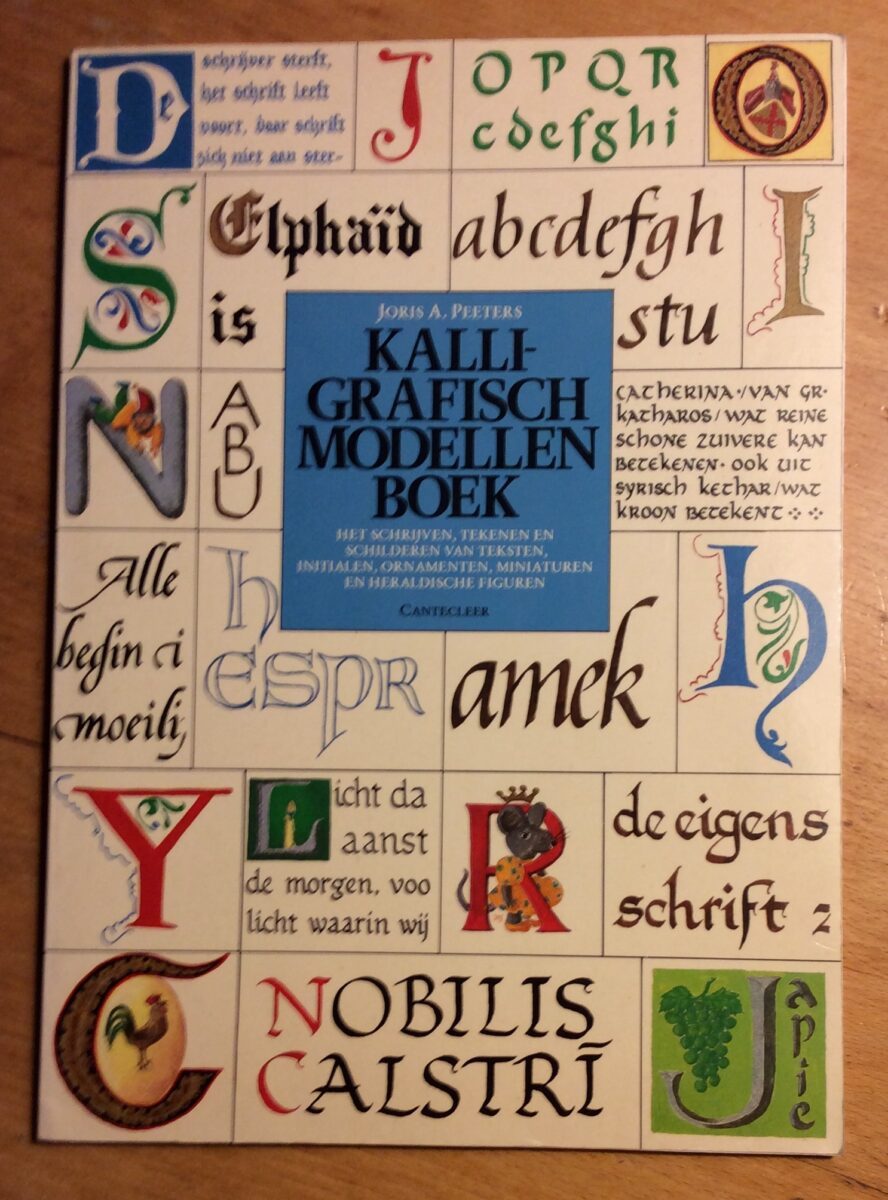 De schrijver sterft,
het schrift leeft
voort, daar schrift
zich niet aan ster-
J
OPQR
cdefghi
O
S
Elphaïd
is
abcdefgh
stu
I
JORIS A. PEETERS
KALLI-
GRAFISCH
MODELLEN
BOEK
HET SCHRIJVEN, TEKENEN EN
SCHILDEREN VAN TEKSTEN,
INITIALEN, ORNAMENTEN, MINIATUREN
EN HERALDISCHE FIGUREN
CANTECLEER
N
A
B
U
CATHERINA·/VAN GR·
KATHAROS/WAT REINE
SCHONE ZUIVERE KAN
BETEKENEN· OOK UIT
SYRISCH KETHAR/WAT
KROON BETEKENT
Alle
begin i
moeilij
h
ESPR
amek
h
Y
Licht da
aanst
de morgen, voo
licht waarin wij
R
de eigens
schrift z
C
NOBILIS
CALSTRĪ
Japie